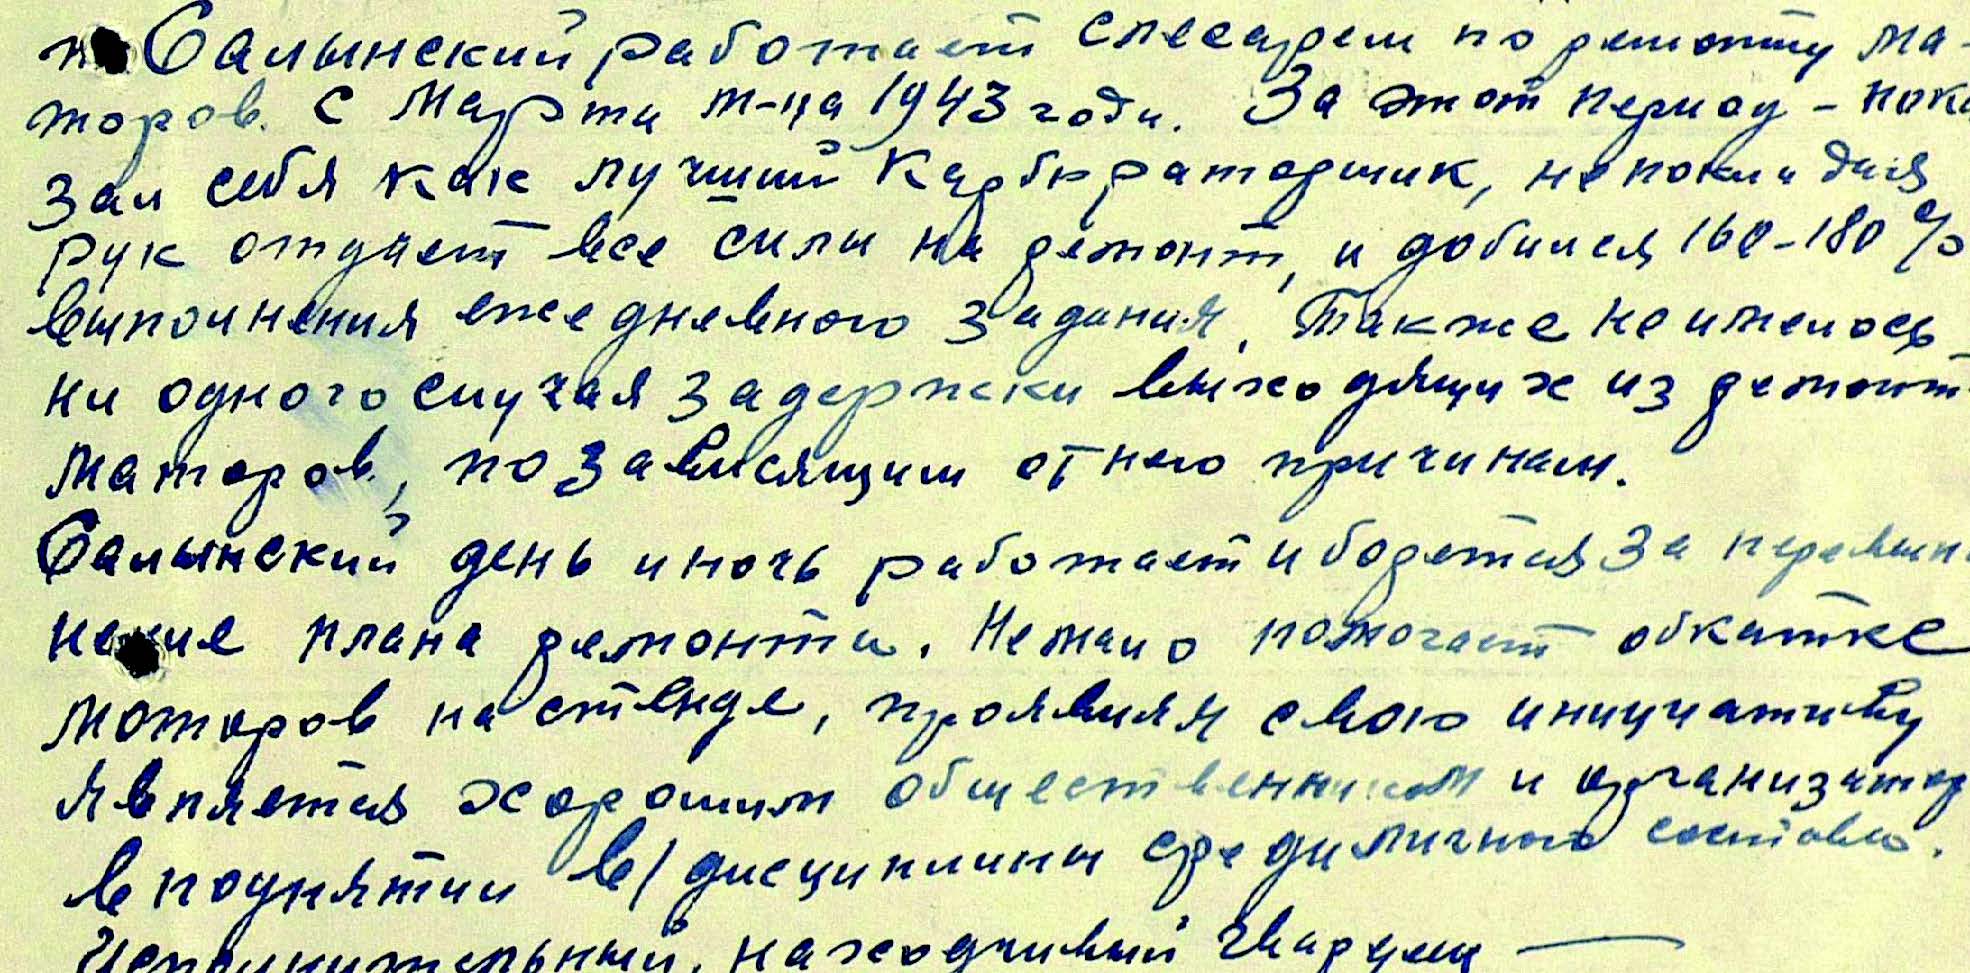 Салынский работает слесарем по ремонту ма-
торов. С Марта м-ца 1943 года. За этот период – пока
зал себя как лучший Карбюраторщик, не покладая
рук отдает все силы на ремонт, и добился 160-180%
выполнения ежедневного задания, Также не имелось
ни одного случая задержки выходящих из ремонт
маторов, по зависящим от него причинам.
Салынский день и ночь работает и борется за перевып.
нение плана ремонта. Немало помогает обкатке
моторов на стенде, проявляя свою инициативу
является хорошим общественником и организатор
в поднятии в/дисциплины среди личного состава.
Исполнительный, находчивый гвардеец —